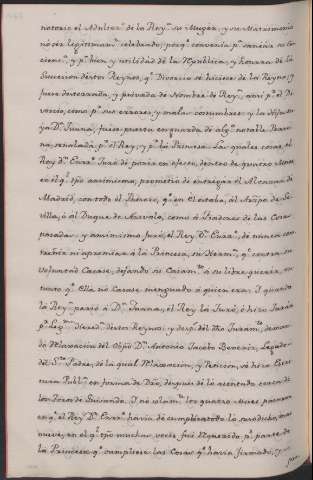 notorio el Adulter.º de la Rey.ª su Muger, y su Matrimonio
no ser legitimam.te celebrado; porq.e convenía p.ª sanear su con-
cienc.ª, y p.r bien y utilidad de la Republica, y honrra de la
Succesion destos Reynos, q.e Divorcio se hiciese de la Reyna, y
fuese desterrada, y privada de Nombre de Rey.ª, assi p.r el Di-
vorcio, como p.r sus errores, y malas costumbres: y la Hija su-
ya D.ª Juana, fuese puesta en guarda de alg.ª notable Perso-
na, señalada p.r el Rey, y p.r la Princesa. Las quales cosas, el
Rey D.n Enrr.e Juró de poner en efecto, dentro de quatro Meses
en el q.l tpo assimismo, prometió de entregar el Alcazar de
Madrid, con todo el thesoro, q.e en el estaba, al Arzpo de Se-
villa, ó al Duque de Arevalo, como á fiadores de las Cosas
pasadas: y assimismo Juró, el Rey D.n Enrr.e, de nunca cons-
treñir ni apremiar á la Princesa, su Herm.ª, q.e contra su
voluntad Casase, dejando su Casam.to á su libre querer, en
tanto q.e Ella no Casase menguado á quien era. I quando
la Rey.ª parió á D.ª Juana, el Rey la Juró, é hizo Jurar
p.r Leg.ma Hered.ª destos Reynos; y desp.s del dho Juram.to, deman-
dó Relaxacion del Obpo D.n Antonio Jacobo Beneriz, Legado
del S.to Padre, de la qual Relaxacion, y Peticion, se hizo Escri-
tura Publ.ª en forma de Dro, despues de lo asentado cerca de
los Toros de Guisando. I no solam.te los quatro Meses pasaron
en q.e el Rey D.n Enrr.e havía de cumplir todo lo susodicho, mas
nueve, en el q.l tpo muchas veces fué Requerido p.r parte de
la Princesa q.e cumpliese las Cosas q.e havía firmado, y